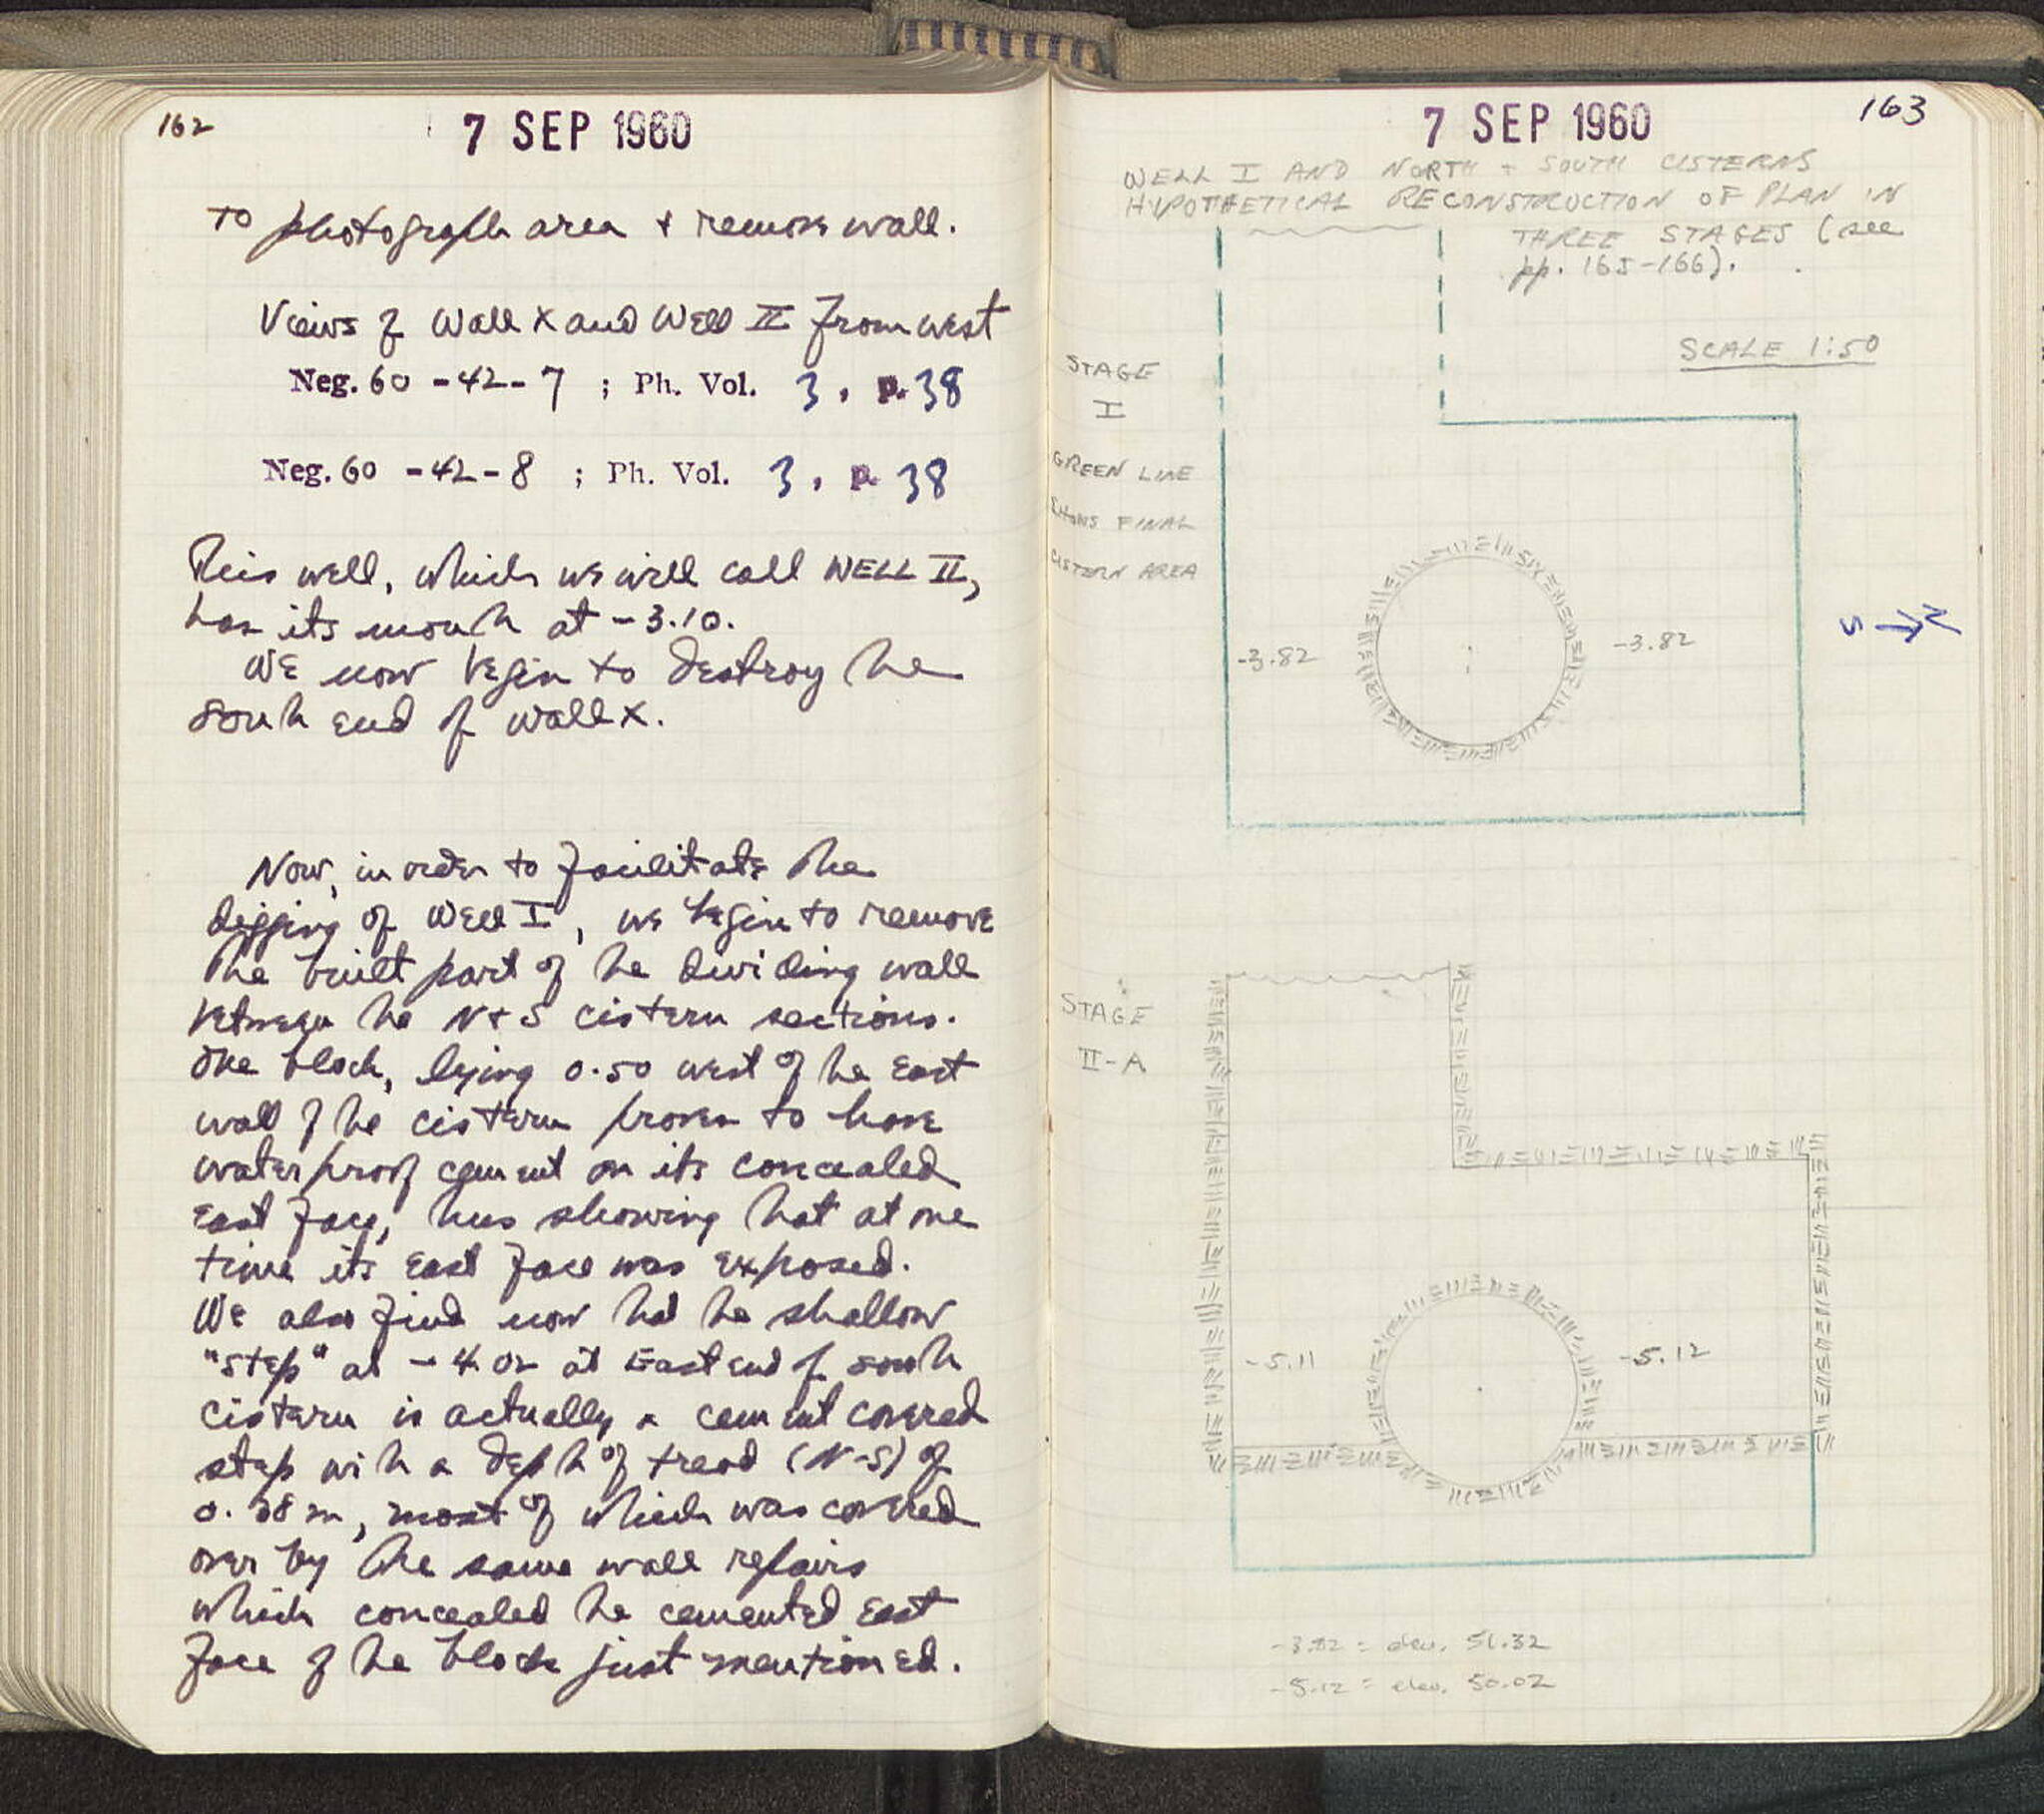 162
7 SEP 1960
to photograph area + remove wall.
Views of Wall X and Well II from west
Neg. 60 -42-7 ; Ph. Vol. 3, p. 38
Neg. 60 -42-8 ; Ph. Vol. 3, p. 38
This well, which we will call WELL II,
has its mouth at -3.10.
We now begin to destroy the
south end of wall X.
Now, in order to facilitate the
digging of Well I, we begin to remove
the built part of the dividing wall
between the N+S cistern sections.
One block, lying 0.50 west of the East
wall of the cistern proves to have
waterproof cement on its concealed
East face, thus showing that at one
time its East face was exposed.
We also find now that the shallow
"step" at -4.02 at East end of south
cistern is actually a cement covered
step with a depth of tread (N-S) of
0.38 m, most of which was covered
over by the same wall repairs
which concealed the cemented East
face of the block just mentioned.
7 SEP 1960
163
WELL I AND NORTH + SOUTH CISTERNS
HYPOTHETICAL RECONSTRUCTION OF PLAN IN
THREE STAGES (see
pp. 165-166).
SCALE 1:50
STAGE
I
GREEN LINE
SHOWS FINAL
CISTERN AREA
-3.82
-3.82
S N
STAGE
II-A
-5.11
-5.12
-3.82 = elev. 51.32
-5.12 = elev. 50.02